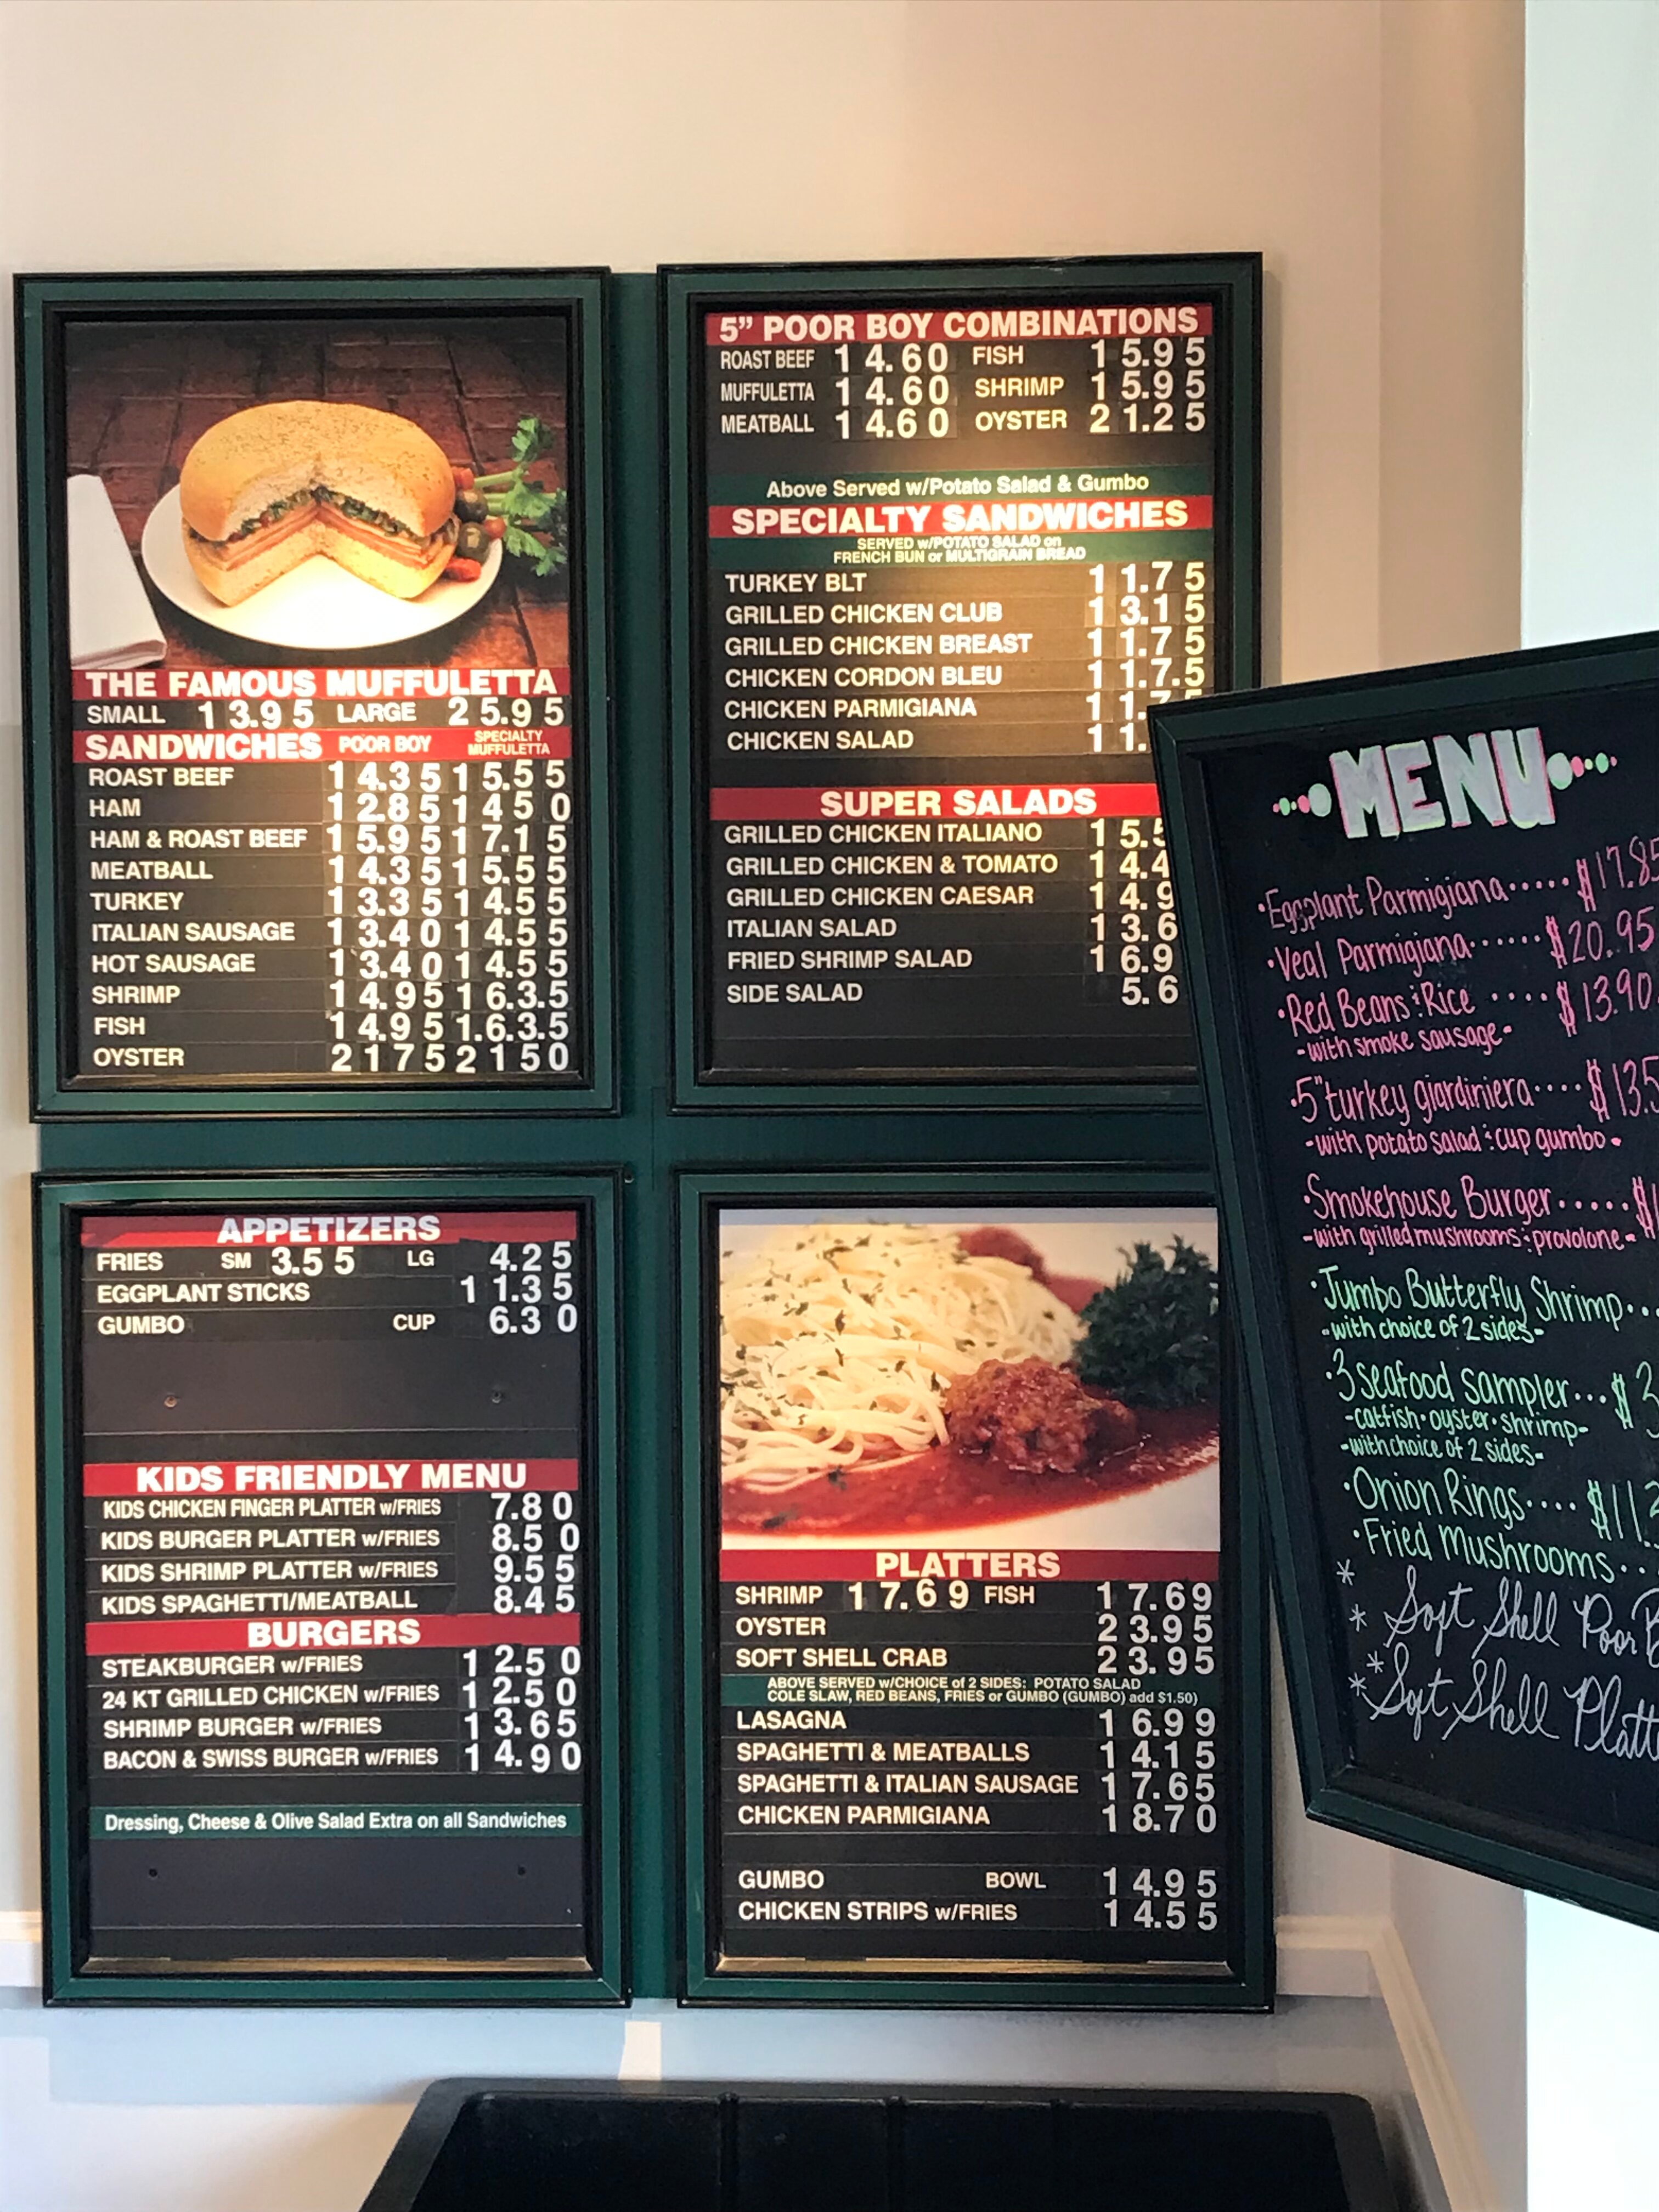 THE FAMOUS MUFFULETTA
SMALL 13.95 LARGE 25.95
SANDWICHES POOR BOY SPECIALTY MUFFULETTA
ROAST BEEF 14.35 15.55
HAM 12.85 1450
HAM & ROAST BEEF 15.95 17.15
MEATBALL 14.35 15.55
TURKEY 13.35 14.55
ITALIAN SAUSAGE 13.40 14.55
HOT SAUSAGE 13.40 14.55
SHRIMP 14.95 16.3.5
FISH 14.95 1.6.3.5
OYSTER 2175 2150
5" POOR BOY COMBINATIONS
ROAST BEEF 14.60 FISH 15.95
MUFFULETTA 14.60 SHRIMP 15.95
MEATBALL 14.60 OYSTER 21.25
Above Served w/Potato Salad & Gumbo
SPECIALTY SANDWICHES
SERVED w/POTATO SALAD on
FRENCH BUN or MULTIGRAIN BREAD
TURKEY BLT 11.75
GRILLED CHICKEN CLUB 13.15
GRILLED CHICKEN BREAST 11.75
CHICKEN CORDON BLEU 11.7.5
CHICKEN PARMIGIANA 11.7
CHICKEN SALAD 11.
SUPER SALADS
GRILLED CHICKEN ITALIANO 15.5
GRILLED CHICKEN & TOMATO 14.4
GRILLED CHICKEN CAESAR 14.9
ITALIAN SALAD 13.6
FRIED SHRIMP SALAD 16.9
SIDE SALAD 5.6
APPETIZERS
FRIES SM 3.55 LG 4.25
EGGPLANT STICKS 11.35
GUMBO CUP 6.30
KIDS FRIENDLY MENU
KIDS CHICKEN FINGER PLATTER w/FRIES 7.80
KIDS BURGER PLATTER w/FRIES 8.50
KIDS SHRIMP PLATTER w/FRIES 9.55
KIDS SPAGHETTI/MEATBALL 8.45
BURGERS
STEAKBURGER w/FRIES 12.50
24 KT GRILLED CHICKEN w/FRIES 12.50
SHRIMP BURGER w/FRIES 13.65
BACON & SWISS BURGER w/FRIES 14.90
Dressing, Cheese & Olive Salad Extra on all Sandwiches
PLATTERS
SHRIMP 17.69 FISH 17.69
OYSTER 23.95
SOFT SHELL CRAB 23.95
ABOVE SERVED w/CHOICE of 2 SIDES: POTATO SALAD
COLE SLAW, RED BEANS, FRIES or GUMBO (GUMBO) add $1.50)
LASAGNA 16.99
SPAGHETTI & MEATBALLS 14.15
SPAGHETTI & ITALIAN SAUSAGE 17.65
CHICKEN PARMIGIANA 18.70
GUMBO BOWL 14.95
CHICKEN STRIPS w/FRIES 14.55
MENU
•Eggplant Parmigiana..... $17.85
•Veal Parmigiana...... $20.95
•Red Beans & Rice .... $13.90
-with smoke sausage-
•5" turkey giardiniera.... $13.5
-with potato salad & cup gumbo-
•Smokehouse Burger..... $1
-with grilled mushrooms & provolone-
•Jumbo Butterfly Shrimp...
-with choice of 2 sides-
•3 seafood sampler... $3
-catfish•oyster•shrimp-
-with choice of 2 sides-
•Onion Rings.... $11.
•Fried Mushrooms...
* Soft Shell Poor B
* Soft Shell Platt